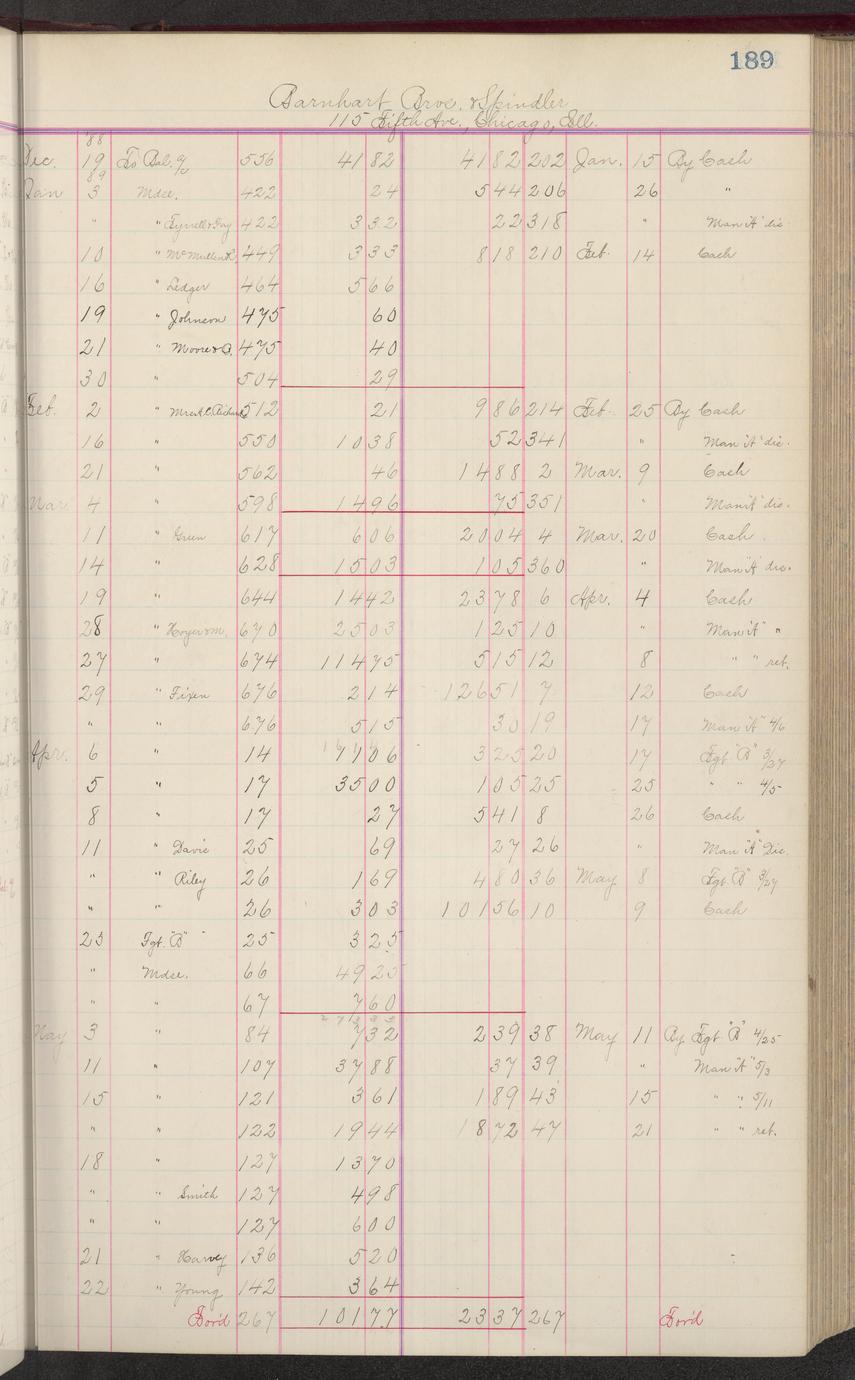 189
Barnhart Bros. & Spindler
115 Fifth Ave., Chicago, Ill.
'88
Dec. 19 To Bal. 556 41 82 41 82 202 Jan. 15 By Cash
89
Jan 3 Mdse. 422 24 5 44 206 26 "
" " Tyrrell & Gay 422 3 32 22 318 " Man "A" dis
10 " McMullen 449 3 33 8 18 210 Feb. 14 Cash
16 " Ledger 464 5 66
19 " Johnson 475 60
21 " Moore & 475 40
30 " 504 29
Feb. 2 " 512 21 9 86 214 Feb. 25 By Cash
16 " 550 10 38 52 341 " Man "A" dis.
21 " 562 46 14 88 2 Mar. 9 Cash
Mar 4 " 598 14 96 75 351 " Man "A" dis.
11 " Green 617 6 06 20 04 4 Mar. 20 Cash
14 " 628 15 03 1 05 360 " Man "A" dis.
19 " 644 14 42 23 78 6 Apr. 4 Cash
28 " 670 25 03 1 25 10 " Man "A" "
27 " 674 114 75 5 15 12 8 " " ret.
29 " Fixen 676 2 14 126 51 7 12 Cash
" " 676 5 15 30 19 17 Man "A" 4/6
Apr. 6 " 14 3 25 20 17 Fgt "B" 3/27
5 " 17 35 00 1 05 25 25 " " 4/5
8 " 17 27 5 41 8 26 Cash
11 " Davis 25 69 27 26 " Man "A" Dis.
" " Riley 26 1 69 4 80 36 May 8 Fgt. "B" 3/27
" " 26 3 03 101 56 10 9 Cash
23 Fgt. "B" 25 3 25
" Mdse. 66 49 25
" " 67 7 60
May 3 " 84 7 32 2 39 38 May 11 By Fgt "B" 4/25
11 " 107 37 88 37 39 " Man "A" 5/3
15 " 121 3 61 1 89 43 15 " " 5/11
" " 122 19 44 18 72 47 21 " " ret.
18 " 127 13 70
" " Smith 127 4 98
" " 127 6 00
21 " Harvey 136 5 20
22 " Young 142 3 64
For'd 267 101 77 23 37 267 For'd